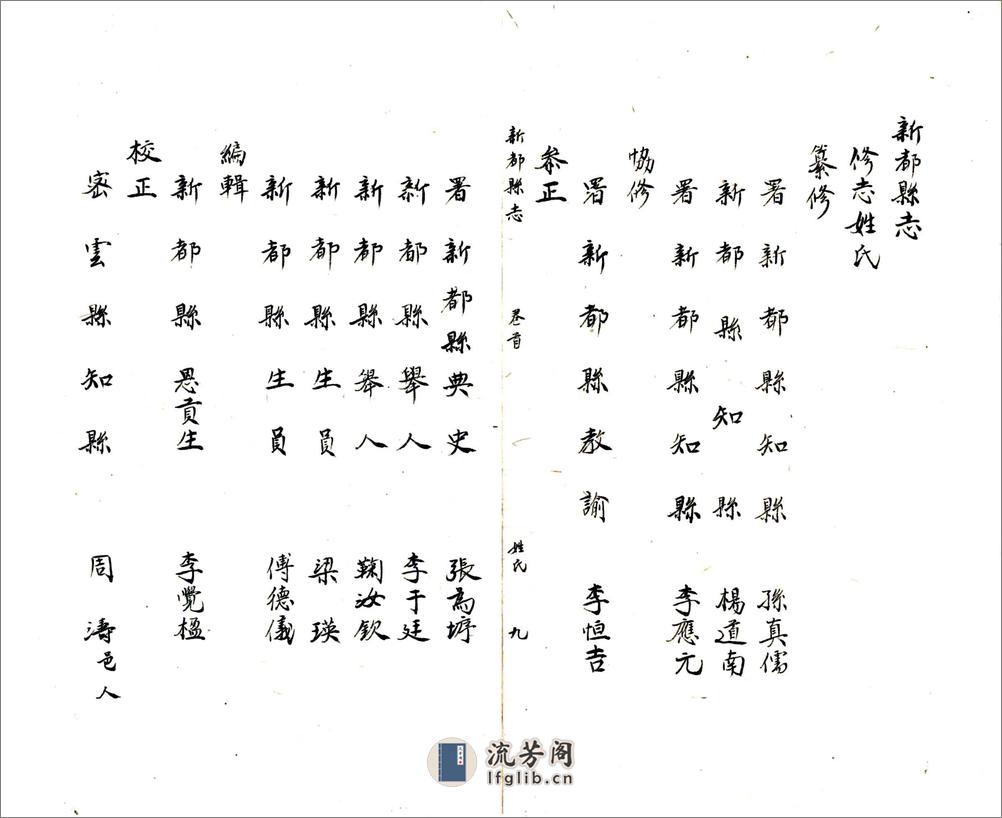 新都縣志
修志姓氏
纂修
署新都縣知縣 孫真儒
新都縣知縣 楊道南
署新都縣知縣 李應元
協修
署新都縣教諭 李恒吉
叅正
新都縣志 卷首 姓氏 九
署新都縣典史 張為㙔
新都縣舉人 李于廷
新都縣舉人 鞠汝欽
新都縣生員 梁瑛
新都縣生員 傅德儀
編輯
新都縣恩貢生 李覺楹
校正
密雲縣知縣 周濤邑人
流芳阁
lfglib.cn